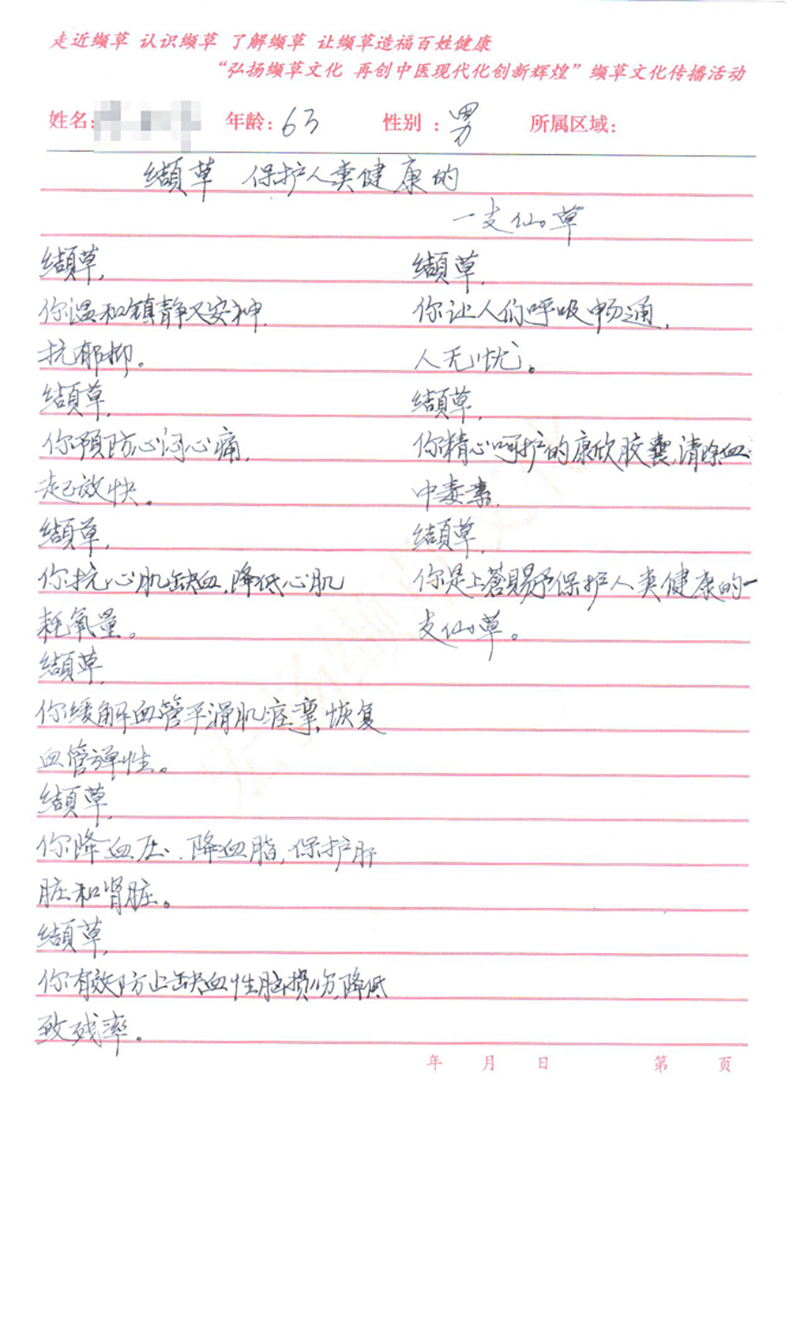 走近缬草 认识缬草 了解缬草 让缬草造福百姓健康
“弘扬缬草文化 再创中医现代化创新辉煌”缬草文化传播活动
姓名: 年龄:63 性别:男 所属区域:
缬草 保护人类健康的
一支仙草
缬草,
你温和镇静又安神,
抗郁抑。
缬草,
你预防心闷心痛,
起效快。
缬草,
你抗心肌缺血,降低心肌
耗氧量。
缬草,
你缓解血管平滑肌痉挛,恢复
血管弹性。
缬草,
你降血压、降血脂,保护肝
脏和肾脏。
缬草,
你有效防止缺血性脑损伤,降低
致残率。
缬草,
你让人们呼吸畅通,
人无忧。
缬草,
你精心呵护的康欣胶囊,清除血
中毒素,
缬草,
你是上苍賜予保护人类健康的一
支仙草。
年 月 日 第 页